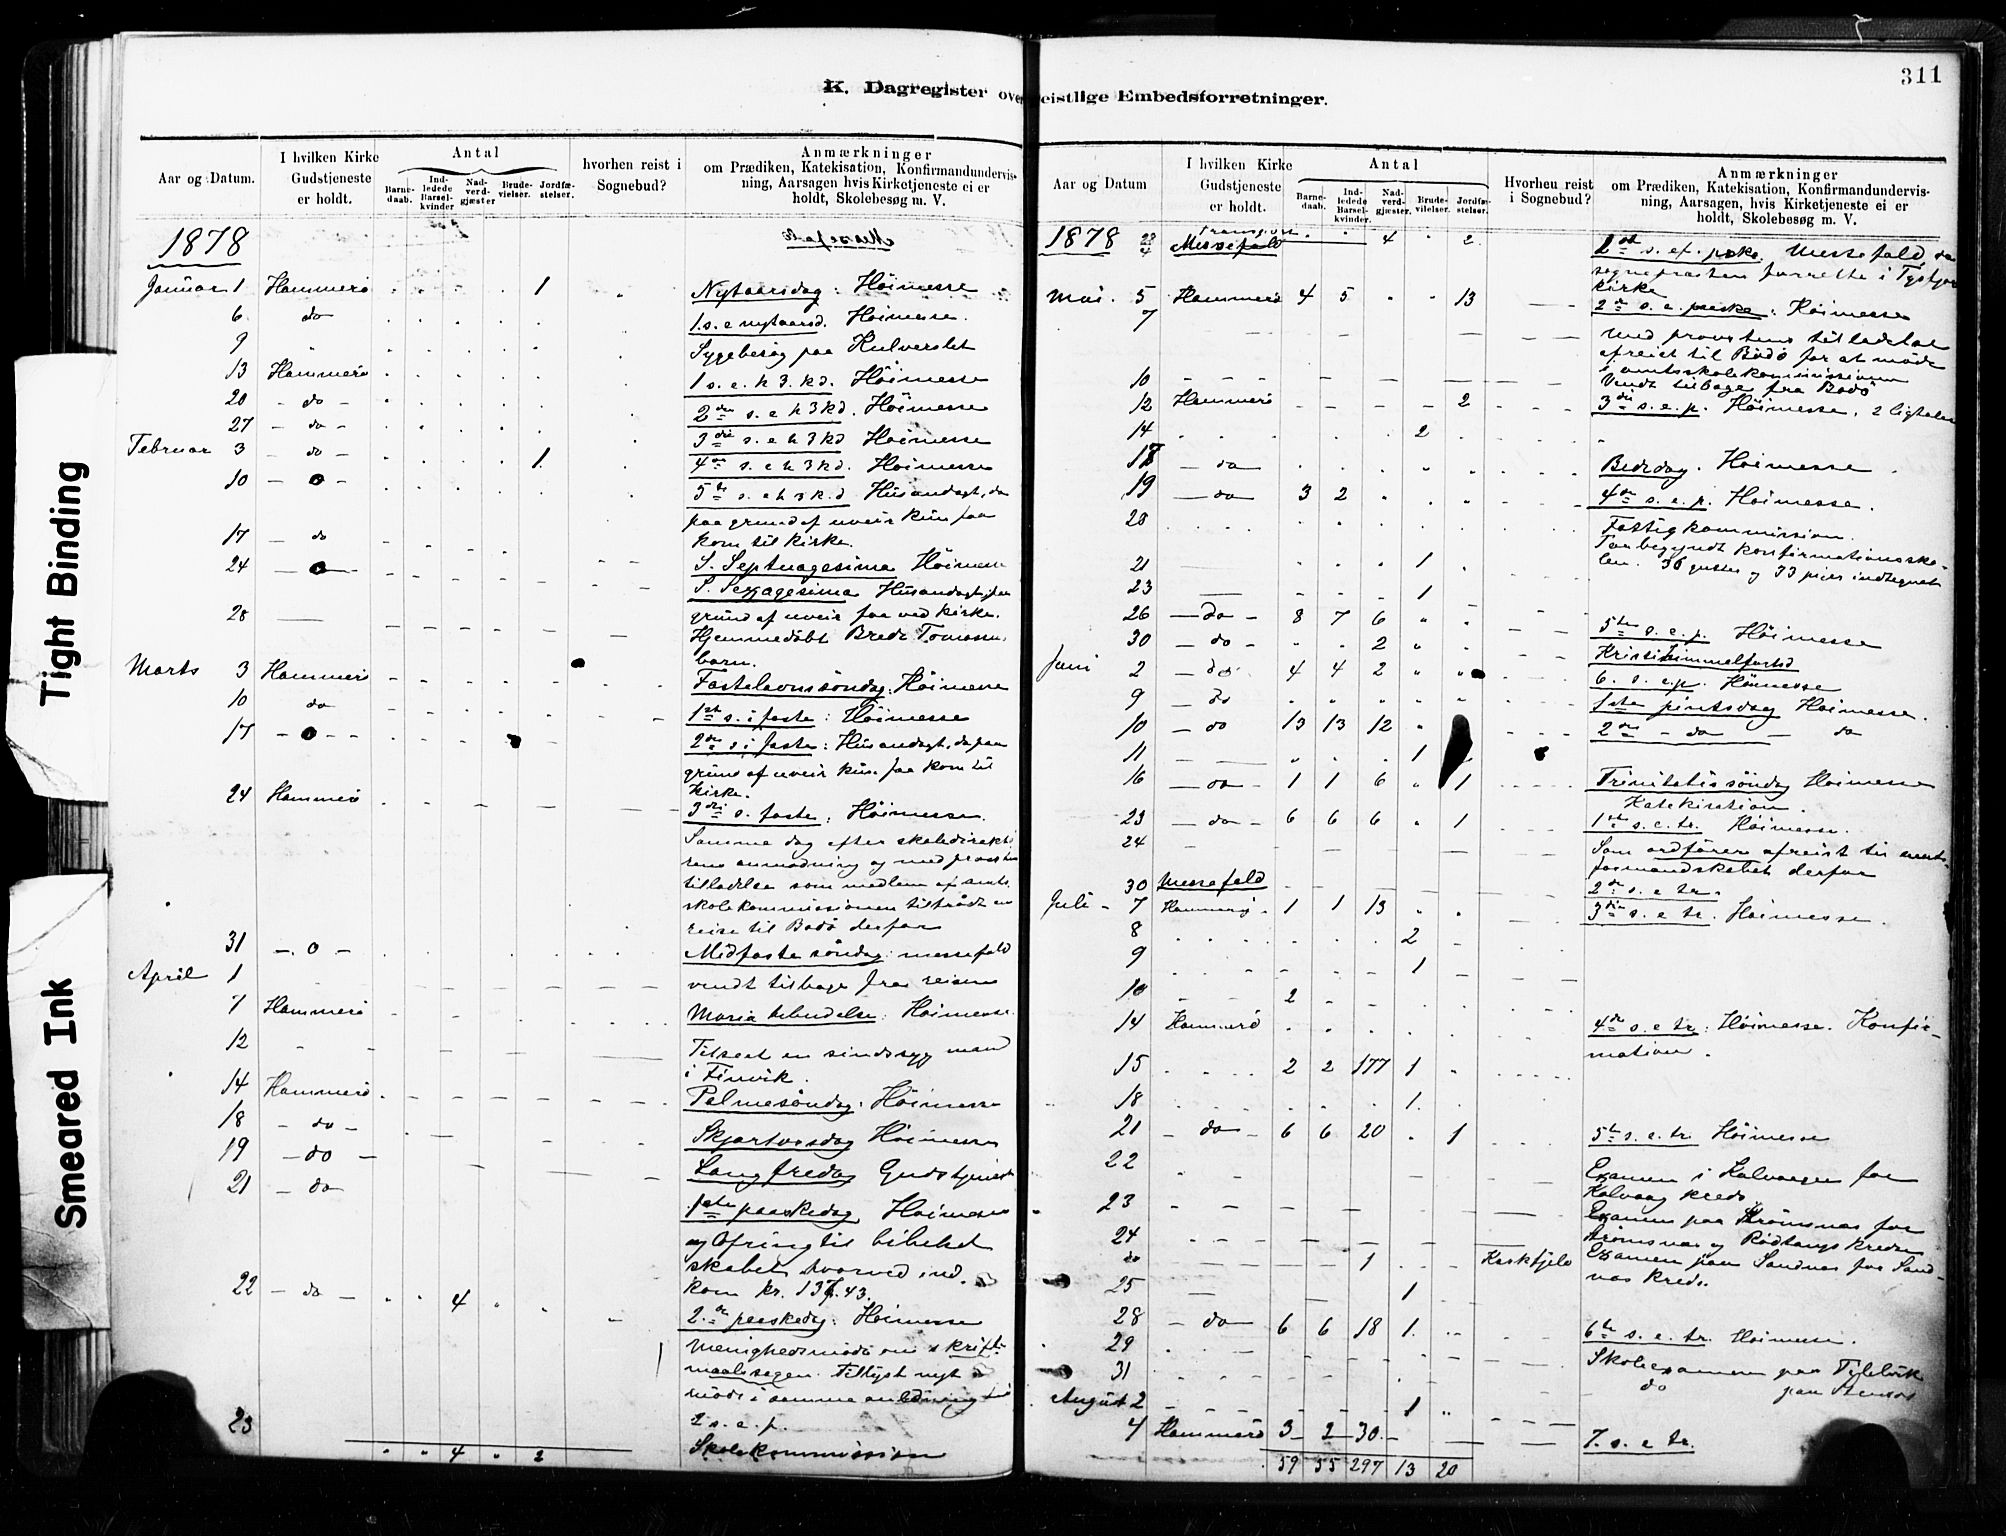 311
K. Dagregister over
eistlige Embedsforretninger.
Tight Binding
Smeared Ink
Aar og Datum.
I hvilken Kirke
Gudstjeneste
er holdt.
Antal
Barne-
daab.
Ind-
ledede
Barsel-
kvinder
Nad-
verd-
gjæster
Brude-
vielser.
Jordfæ-
stelser.
hvorhen reist i
Sognebud?
Anmærkninger
om Prædiken, Katekisation, Konfirmandundervis-
ning, Aarsagen hvis Kirketjeneste ei er
holdt, Skolebesøg m. V.
1878
Januar 1 Hammerö 1 Nytaarsdag: Höimesse
6. do 1. s. e nytaarsd. Höimesse.
9 Sygebesög paa
13 Hammerö 1 s. e. h 3. kd. Höimesse
20 - do - 2den s. e h 3 kd. Höimesse
27 - do - 3die s. e h 3 kd Höimesse
Februar 3 - do - 1. 4de s. e h 3 kd. Höimesse
10 - o - 5te s. e h 3 k. d Husandagt, da
paa grund af uveir kun faa
kom til kirke.
17 - do S. Septuagesima Höimesse
24 - o - S. Sexagesima Husandagt, paa
grund af uveir faa ved kirke.
28 Hjemmedöbt Brede
barn.
Marts 3 Hammerö Fastelavnssöndag: Höimesse
10 do 1ste s. i faste: Höimesse
17 - o - - 2den s. i faste: Husandagt, da paa
grund af uveir kun faa kom til
kirke.
24 Hammerö 3die s. faste: Höimesse.
Samme dag efter skoledirektö
rens anmodning og med provstens
tilladelse som medlem af amts
skolekommissionen tiltraadt en
reise til Bodö derfor
31 - o - Midfaste söndag: messefald
April 1 vendt tilbage fra reisen
7 Hammerö Maria bebudelse: Höimesse
12 Tilseet en sindssyg mand
i Finvik.
14 Hammerö Palmesöndag: Höimesse
18 - do - Skjærtorsdag Höimesse
19 - do - Langfredag Gudstjeneste
21 - do 1ste paaskedag Höimesse
og Ofring til bibelsel
skabet hvorved ind.
kom kr. 137.43.
22 - do - 4 2.den paaskedag: Höimesse
Menighedsmöde om skrifte
maalssagen. Tillyst nyt
möde i samme anledning til
2 s. e. p.
23 Skolekommission
4 2
Aar og Datum
I hvilken Kirke
Gudstjeneste
er holdt.
Antal
Barne-
daab.
Ind-
ledede
Barsel-
kvinder.
Nad-
verd-
gjæster.
Brude-
vielser.
Jordfæ-
stelser.
Hvorhen reist
i Sognebud?
Anmærkninger
om Prædiken, Katekisation, Konfirmandundervis-
ning, Aarsagen, hvis Kirketjeneste ei er
holdt, Skolebesøg m. V.
1878 28/4 Transport 4 2.
Messefald 1ste s. ef. paske. Messefald, da
sognepræsten forrette i Tysfjor
kirke
Mai. 5 Hammerö 4 5 13 2den s. e. paaske: Höimesse
7 Med provstens tilladelse
afreist til Bodö for at möde
i amtsskolekommissionen
10 Vendt tilbage fra Bodö
12 Hammerö 2 3die s. e. p. Höimesse. 2 ligtaler
14 2
17 - do Bededag. Höimesse
19 - do 3 2 4de s. e. p. Höimesse.
20 Fattigkommission.
21 1 begyndt konfirmationsskolen. 36 gutter og 33 piger indtegnet
23 1
26 - do - 8 7 6 5te s. e. p. Höimesse
30 - do - 2 Kristi himmelfartsd
Juni 2 - do 4 4 2 6. s. e. p. Höimesse
9 - do 1ste pintsdag Höimesse.
10 - do 13 13 12 2den - do - do
11 1
16 - do - 1 1 6 1 Trinitatissöndag Höimesse
Katekisation.
23 - do - 6 6 6 1 1ste s. e. tr. Höimesse.
24 Som ordförer afreist til amts
formandskabet derfor
30 Messefald 2den s. e tr.
Juli - 7 Hammerö. 1 1 13 3die s. e tr. Höimesse.
8 2
9 1
10 2
14 Hammerö 4de s. e tr: Höimesse. Konfir-
mation.
15 2 2 177 1
18 1.
21 - do - 6 6 20 1 5te s. e. tr. Höimesse
22 Examen i Kalvaagen for
Kalvaag kreds
23 Examen paa Strömsnæs for
Strömsnæs og Rödtangs kredse
24 Examen paa Sandnæs for Sand-
næs kreds.
do 1
25 1
28 - do 6 6 18 1. 6te s. e. tr. Höimesse.
29 Skoleexamen paa
31 do paa
August 2 1
4 Hammerö 3 2 30. 7. s. e tr.
59 55 297 13 20